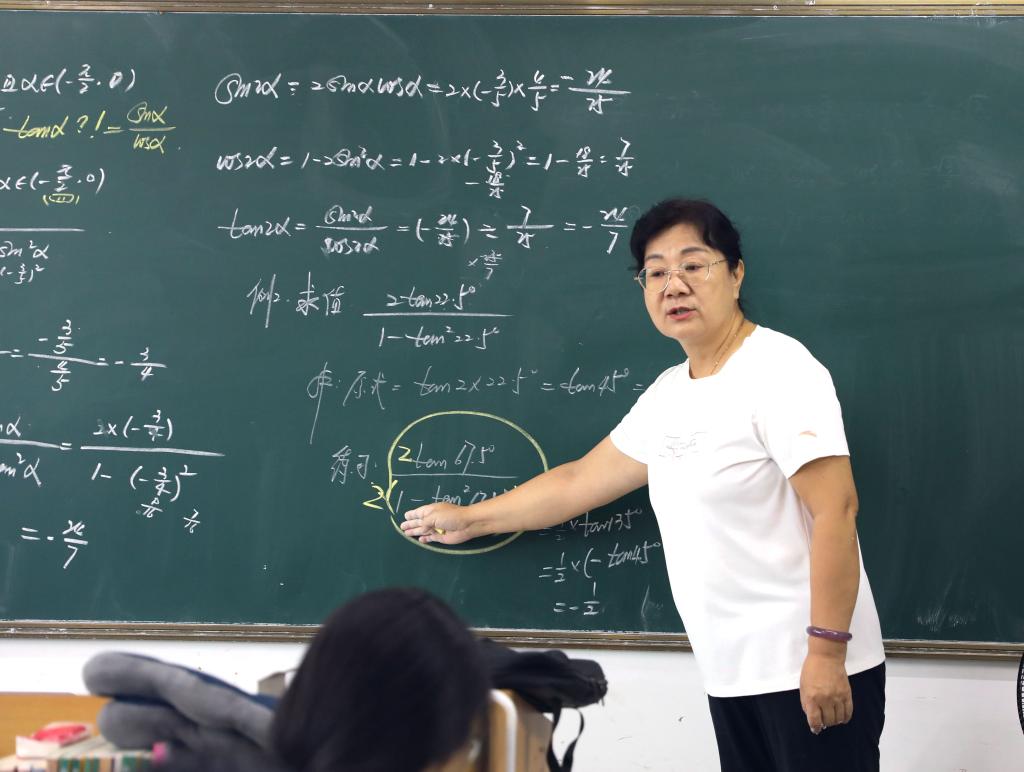 α∈(-π/2.0)
tanα?!=sinα/cosα.
α∈(-π/2.0)
sin²α
(-3/5)²
=(-3/5)/(4/5)=-3/4
=2×(-3/4)/(1-(-3/4)²)
=-24/7
sin2α=2sinαcosα=2×(-3/5)×4/5=-24/25
cos2α=1-2sin²α=1-2×(-3/5)²=1-18/25=7/25
tan2α=sin2α/cos2α=(-24/25)÷7/25=-24/7
×25/7
例2.求值 2tan22.5°/(1-tan²22.5°)
解:原式=tan2×22.5°=tan45°=
练习: 2tan67.5°/(1-tan²67.5°)
2×
=1/2×tan135°
=1/2×(-tan45°
=-1/2